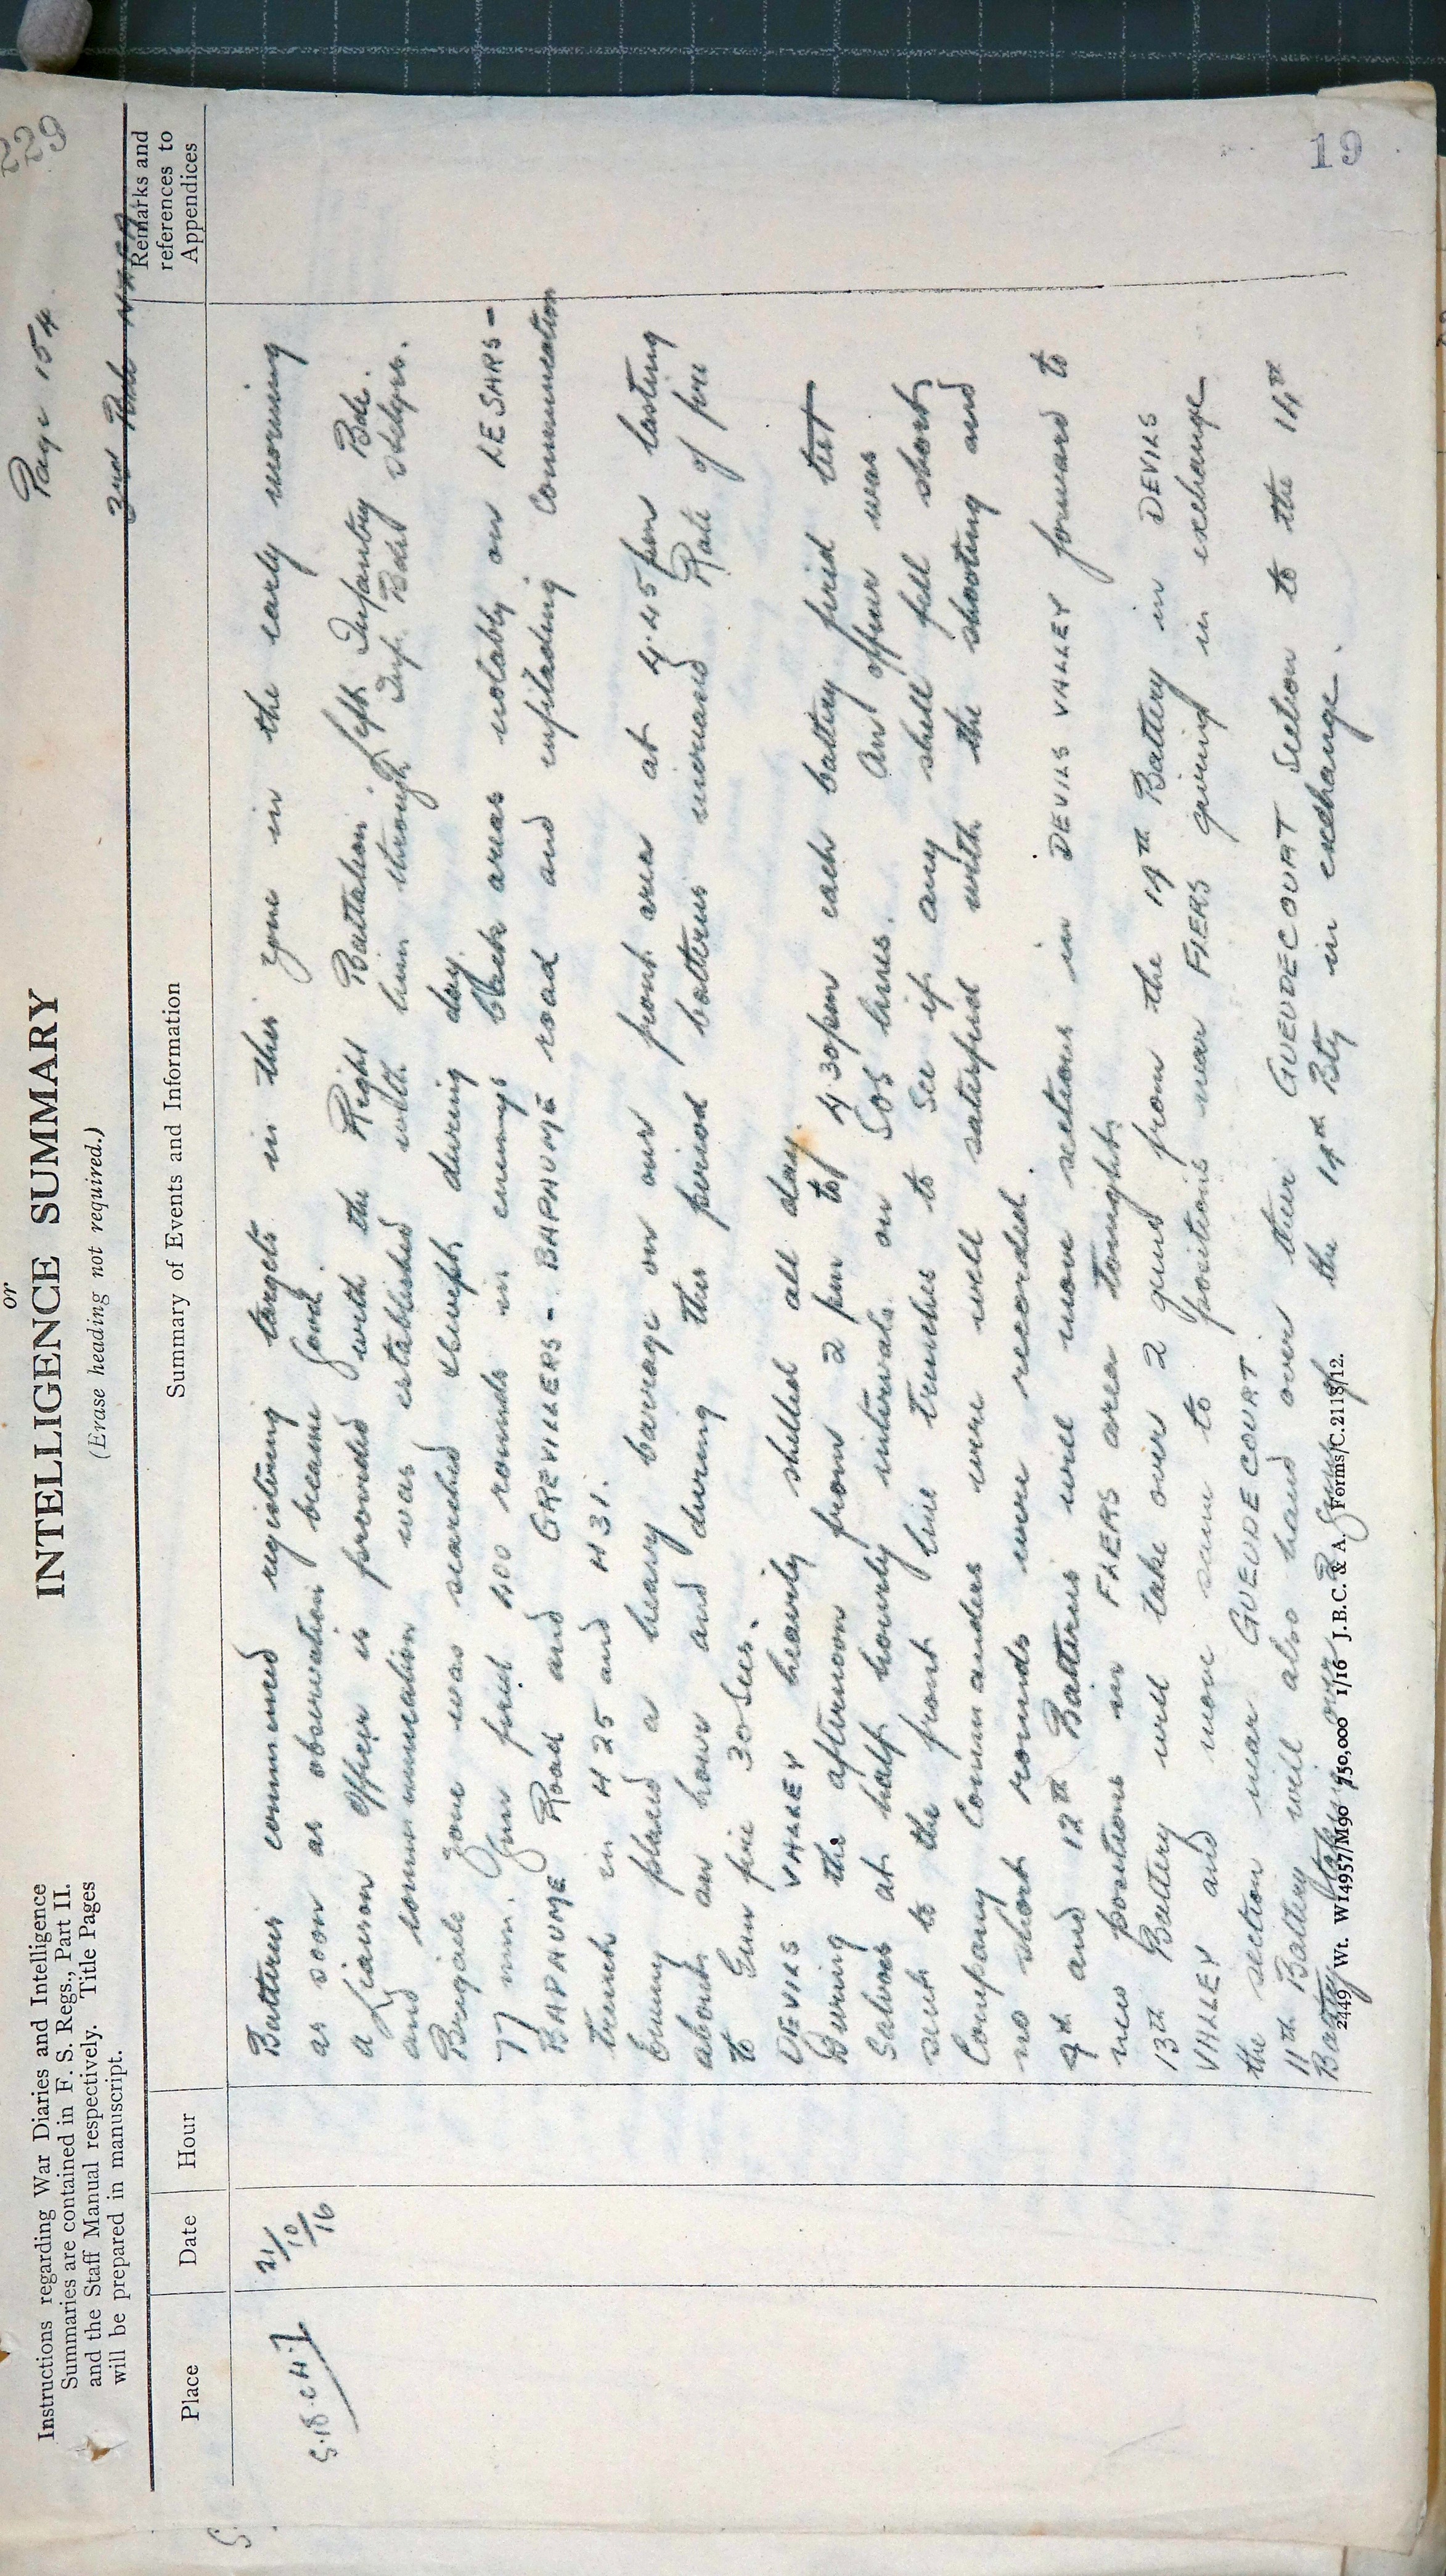 229
Page 154
or
INTELLIGENCE SUMMARY
(Erase heading not required.)
Instructions regarding War Diaries and Intelligence
Summaries are contained in F. S. Regs., Part II.
and the Staff Manual respectively. Title Pages
will be prepared in manuscript.
2nd Bde NZFA
Place
Date
Hour
Summary of Events and Information
Remarks and
references to
Appendices
S.18.c.4.7
21/10/16
Batteries commenced registering targets in this zone in the early morning
as soon as observation became good.
a Liaison Officer is provided with the Right Battalion Left Infantry Bde.
and communication was established with him through Inf. Bde
Brigade zone was searched during day.
77 mm. Guns fired 400 rounds in enemys back areas notably on LE SARS -
BAPAUME Road and GREVILLERS - BAPAUME road and enfilading Communication
trench in H 25 and H 31.
Enemy placed a heavy barrage on our front area at 4.45 pm lasting
about an hour and during this period batteries increased Rate of fire
to Gun fire 30 Secs.
DEVILS VALLEY heavily shelled all day.
During the afternoon from 2 pm to 4.30pm each battery fired test
Salvos at half hourly intervals on SOS lines. An officer was
sent to the front line trenches to see if any shell fell short,
Company Commanders were well satisfied with the shooting and
no short rounds were recorded.
9th and 12th Batteries will move sections in DEVILS VALLEY forward to
new positions in FLERS area tonight.
13th Battery will take over 2 guns from the 19th Battery in DEVILS
VALLEY and move same to positions near FLERS giving in exchange
the section near GUEUDECOURT
11th Battery will also hand over their GUEUDECOURT Section to the 14th
Battery taking over 2 Guns of the 14th Bty in exchange.
2449 Wt. W14957/M90 750,000 1/16 J.B.C. & A. Forms/C.2118/12.
19